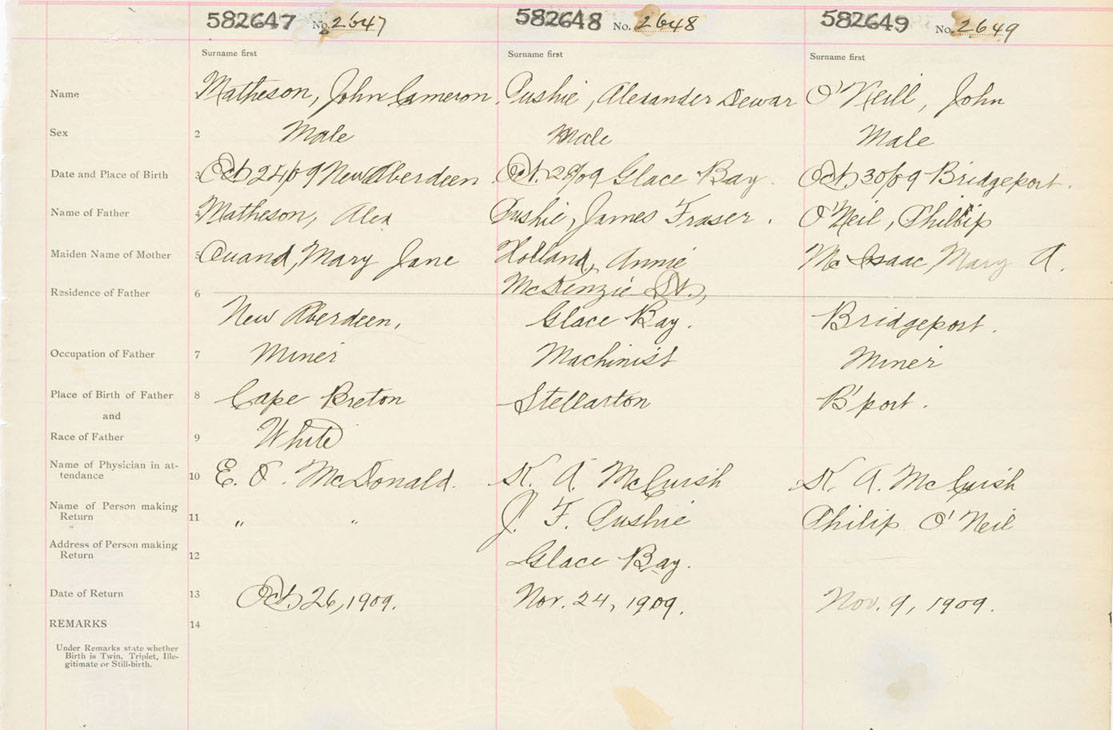 582647 No. 2647 582648 No. 2648 582649 No. 2649
Surname first Surname first Surname first
Name Matheson, John Cameron. Pushie, Alexander Dewar O'Neill, John
Sex 2 Male Male Male
Date and Place of Birth 3 Oct. 24/09 New Aberdeen. Oct. 28/09 Glace Bay. Oct. 30/09 Bridgeport.
Name of Father Matheson, Alex Pushie, James Fraser. O'Neil, Phillip
Maiden Name of Mother 5 Mary Jane Holland, Annie Mc Isaac Mary A.
Residence of Father 6 McKenzie St.,
New Aberdeen, Glace Bay. Bridgeport.
Occupation of Father 7 Miner Machinist Miner
Place of Birth of Father 8 Cape Breton Stellarton B'port.
and
Race of Father 9 White
Name of Physician in at-
tendance 10 E. O. McDonald. K. A. McCuish K. A. McCuish
Name of Person making
Return 11 " " J. F. Pushie Philip O'Neil
Address of Person making
Return 12 Glace Bay.
Date of Return 13 Oct. 26, 1909. Nov. 24, 1909. Nov. 9, 1909.
REMARKS 14
Under Remarks state whether
Birth is Twin, Triplet, Ille-
gitimate or Still-birth.